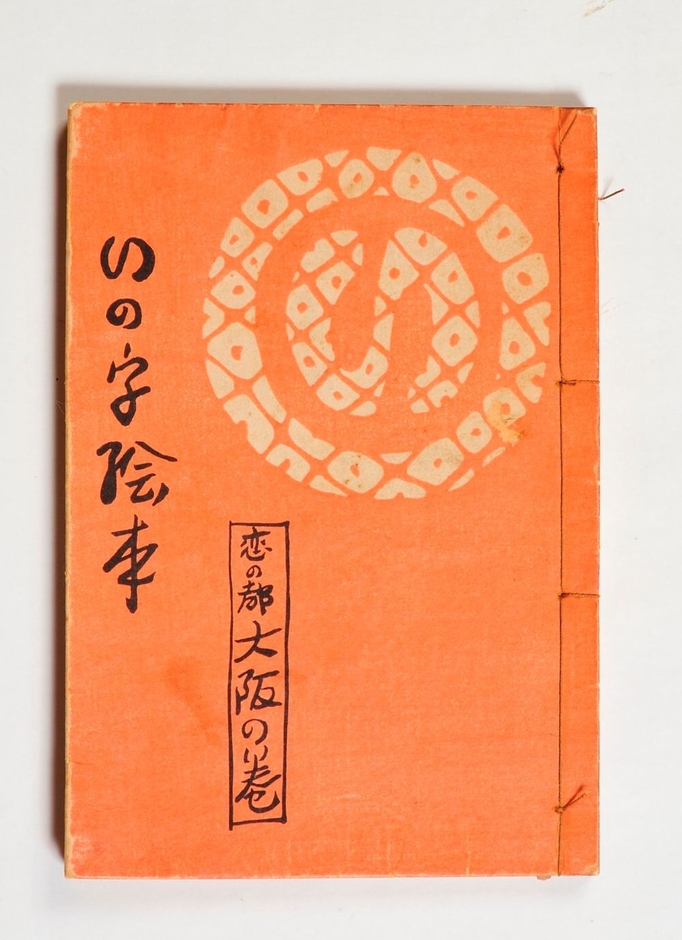 いの字絵本
恋の都大阪の巻
い